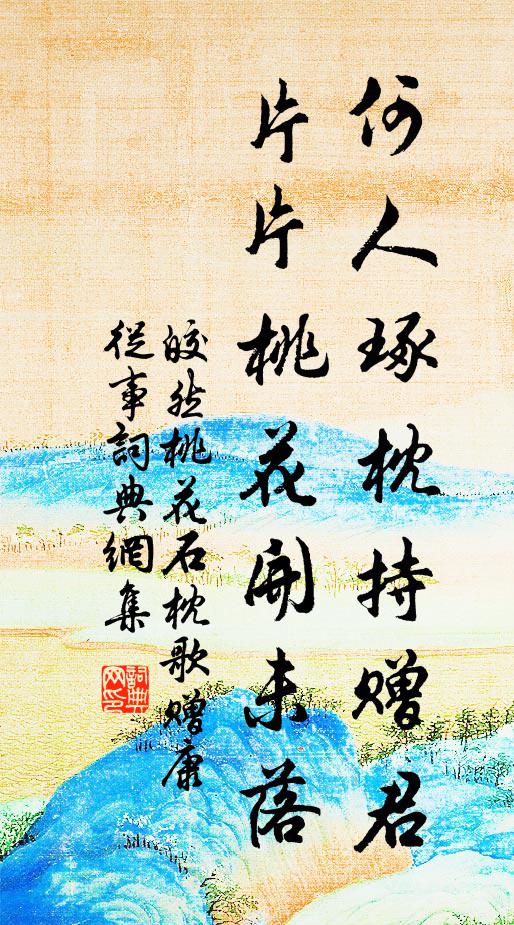 何人琢枕持赠君
片片桃花開未落
皎然桃花石枕歌赠康
從事詞典網集
詞典
网印